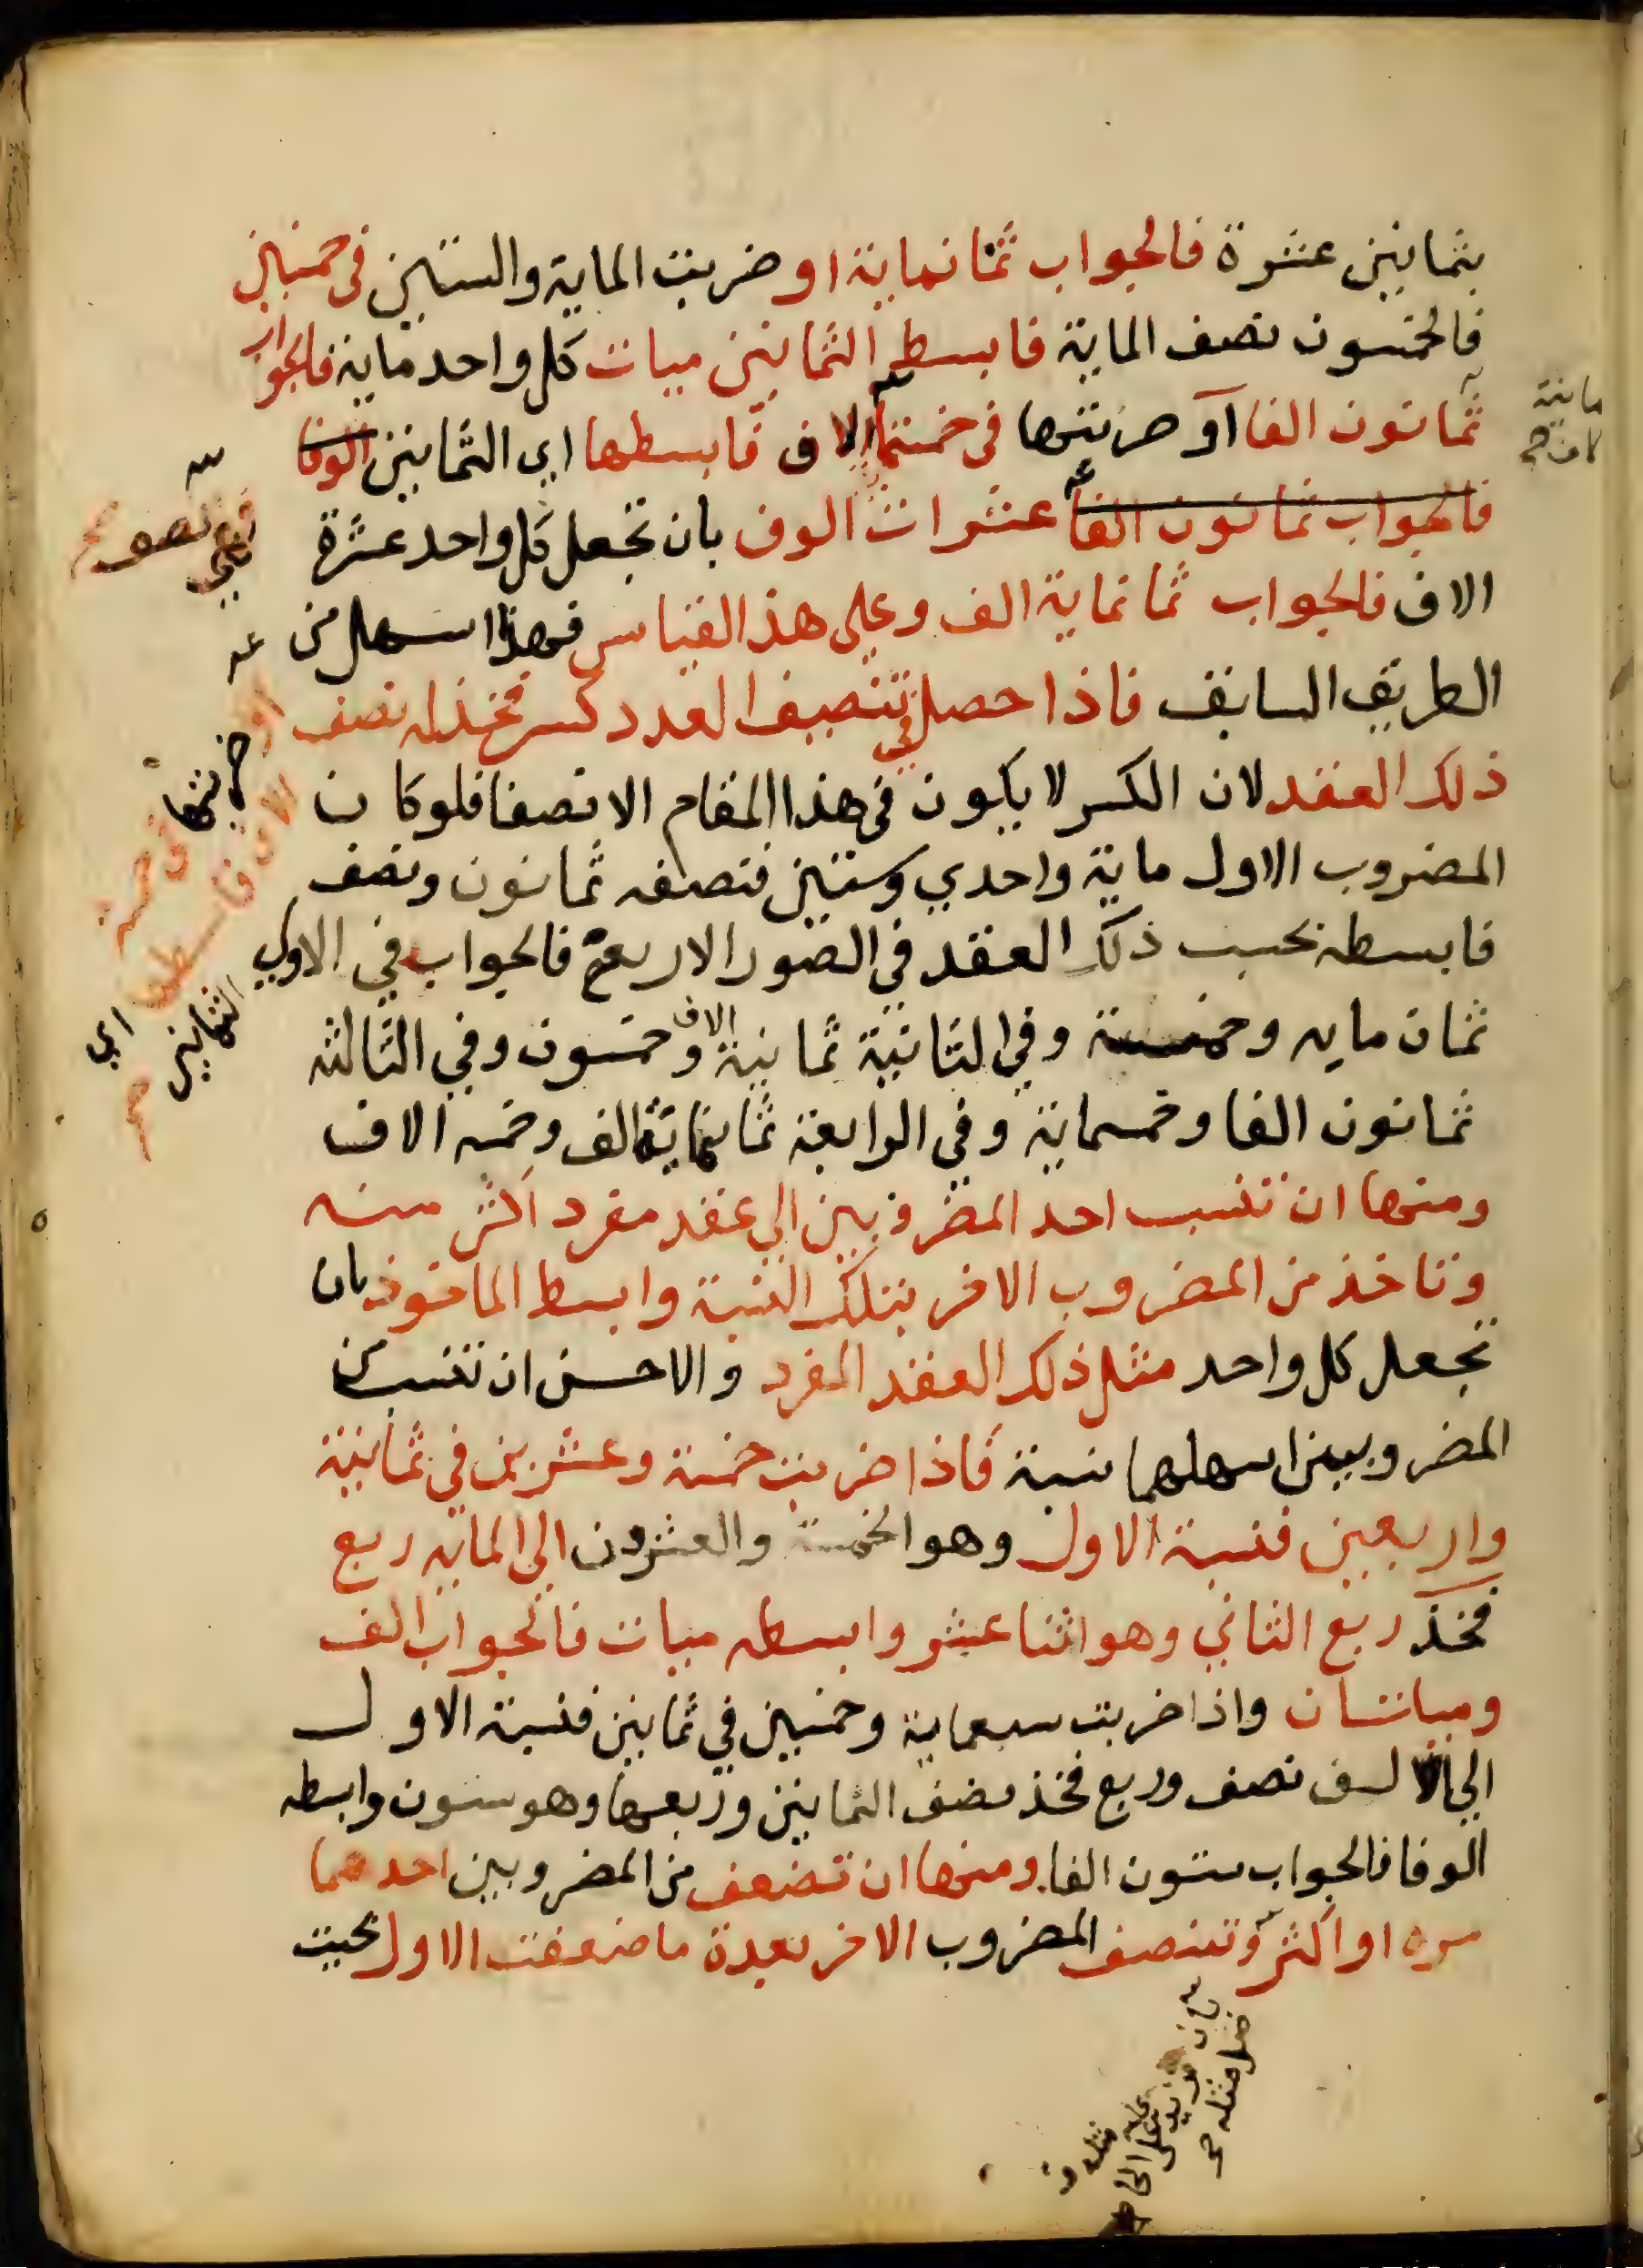 بثمانين عشرة فالجواب ثمانماية او ضربت الماية والستين في خمسين
فالخمسون نصف الماية فابسط الثمانين ميات كل واحد ماية فالجواب
ثمانون الفا او ضربتها في خمسة الاف فابسطها اي الثمانين الوفا
فالجواب ثمانون الفا عشرات الوف بان تجعل كل واحد عشرة
الاف فالجواب ثمانماية الف وعلى هذا القياس فهذا اسهل من
الطريق السابق فاذا حصل في تنصيف العدد كسر فخذ له نصف
ذلك العقد لان الكسر لا يكون في هذا المقام الا نصفا فلو كان
المضروب الاول ماية واحدي وستين فنصفه ثمانون ونصف
فابسطه بحسب ذلك العقد في الصور الاربعة فالجواب في الاولي
ثمان مايه وخمسة وفي الثانية ثمانية الاف وخمسون وفي الثالثه
ثمانون الفا وخمسماية وفي الرابعة ثمانماية الف وخمسه الاف
ومنها ان تنسب احد المضروبين الي عقد مفرد اكثر منه
وتاخذ من المضروب الاخر بتلك النسبة وابسط الماخوذ بان
تجعل كل واحد مثل ذلك العقد المفرد والاحسن ان تنسب من
المضروبين اسهلهما نسبة فاذا ضربت خمسة وعشرين في ثمانية
واربعين فنسبة الاول وهو الخمسة والعشرون الي المايه ربع
فخذ ربع الثاني وهو اثنا عشر وابسطه ميات فالجواب الف
وميأتان واذا ضربت سبعماية وخمسين في ثمانين فنسبة الاول
الي الالف نصف وربع فخذ نصف الثمانين وربعها وهو ستون وابسطه
الوفا فالجواب ستون الفا ومنها ان تضعف من المضروبين احدهما
مرة او اكثر وتنصف المضروب الاخر بعدة ما ضعفت الاول بحيث
ماية
او
ضربتها في خمسة
الاف فابسطها
اي الثمانين